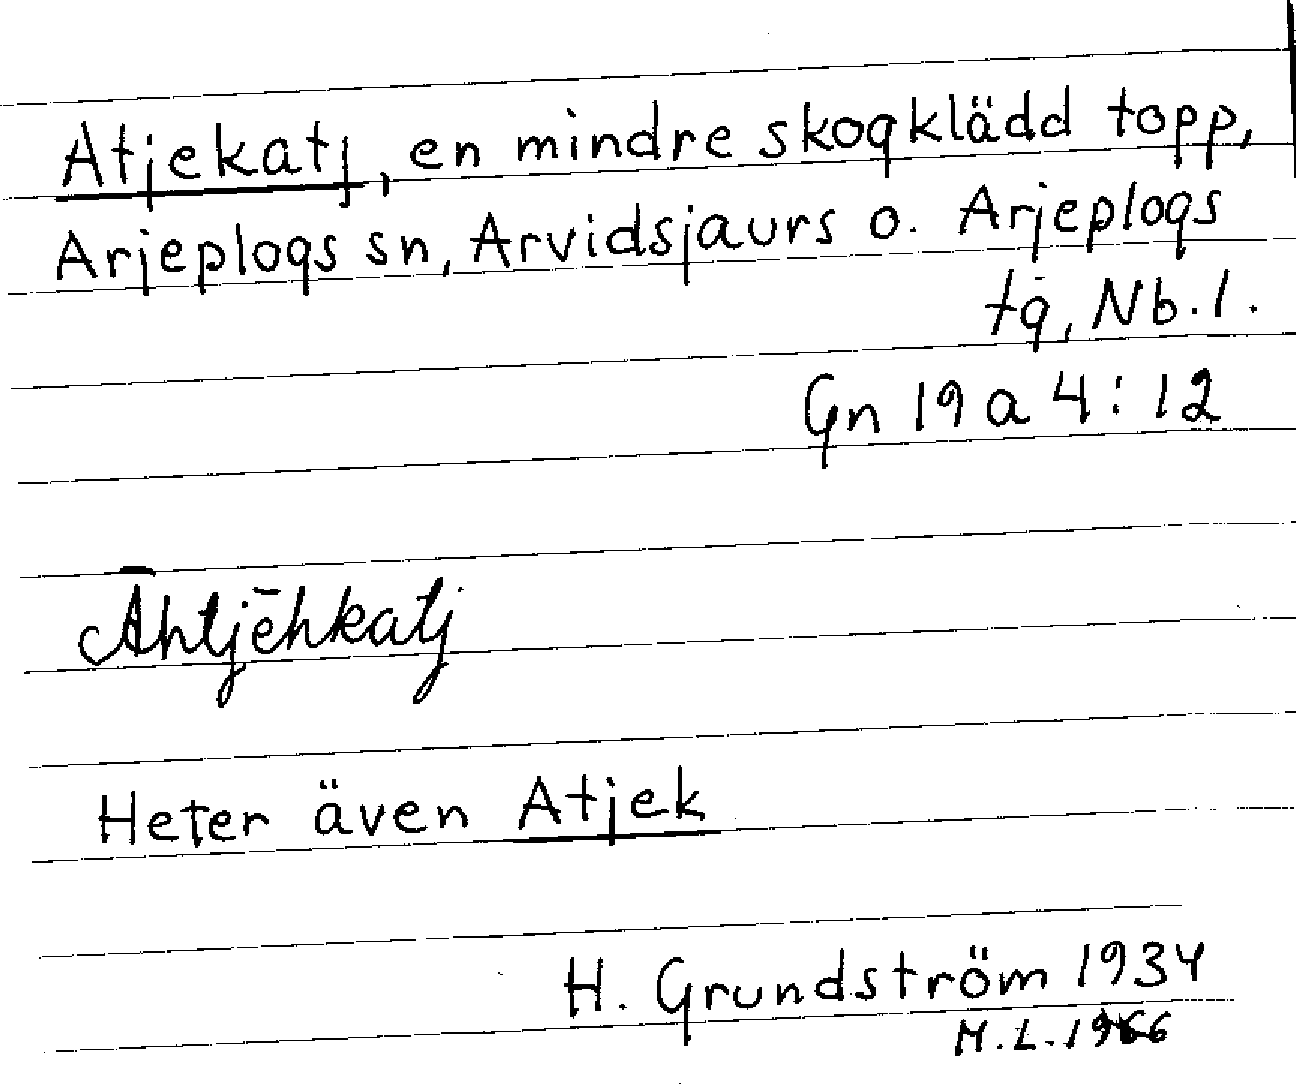 Atjekatj, en mindre skogklädd topp,
Arjeplogs sn, Arvidsjaurs o. Arjeplogs
tg, Nb.l.
Gn 19 a 4:12
Āhtjēhkatj
Heter även Atjek
H. Grundström 1934
M.L. 1966